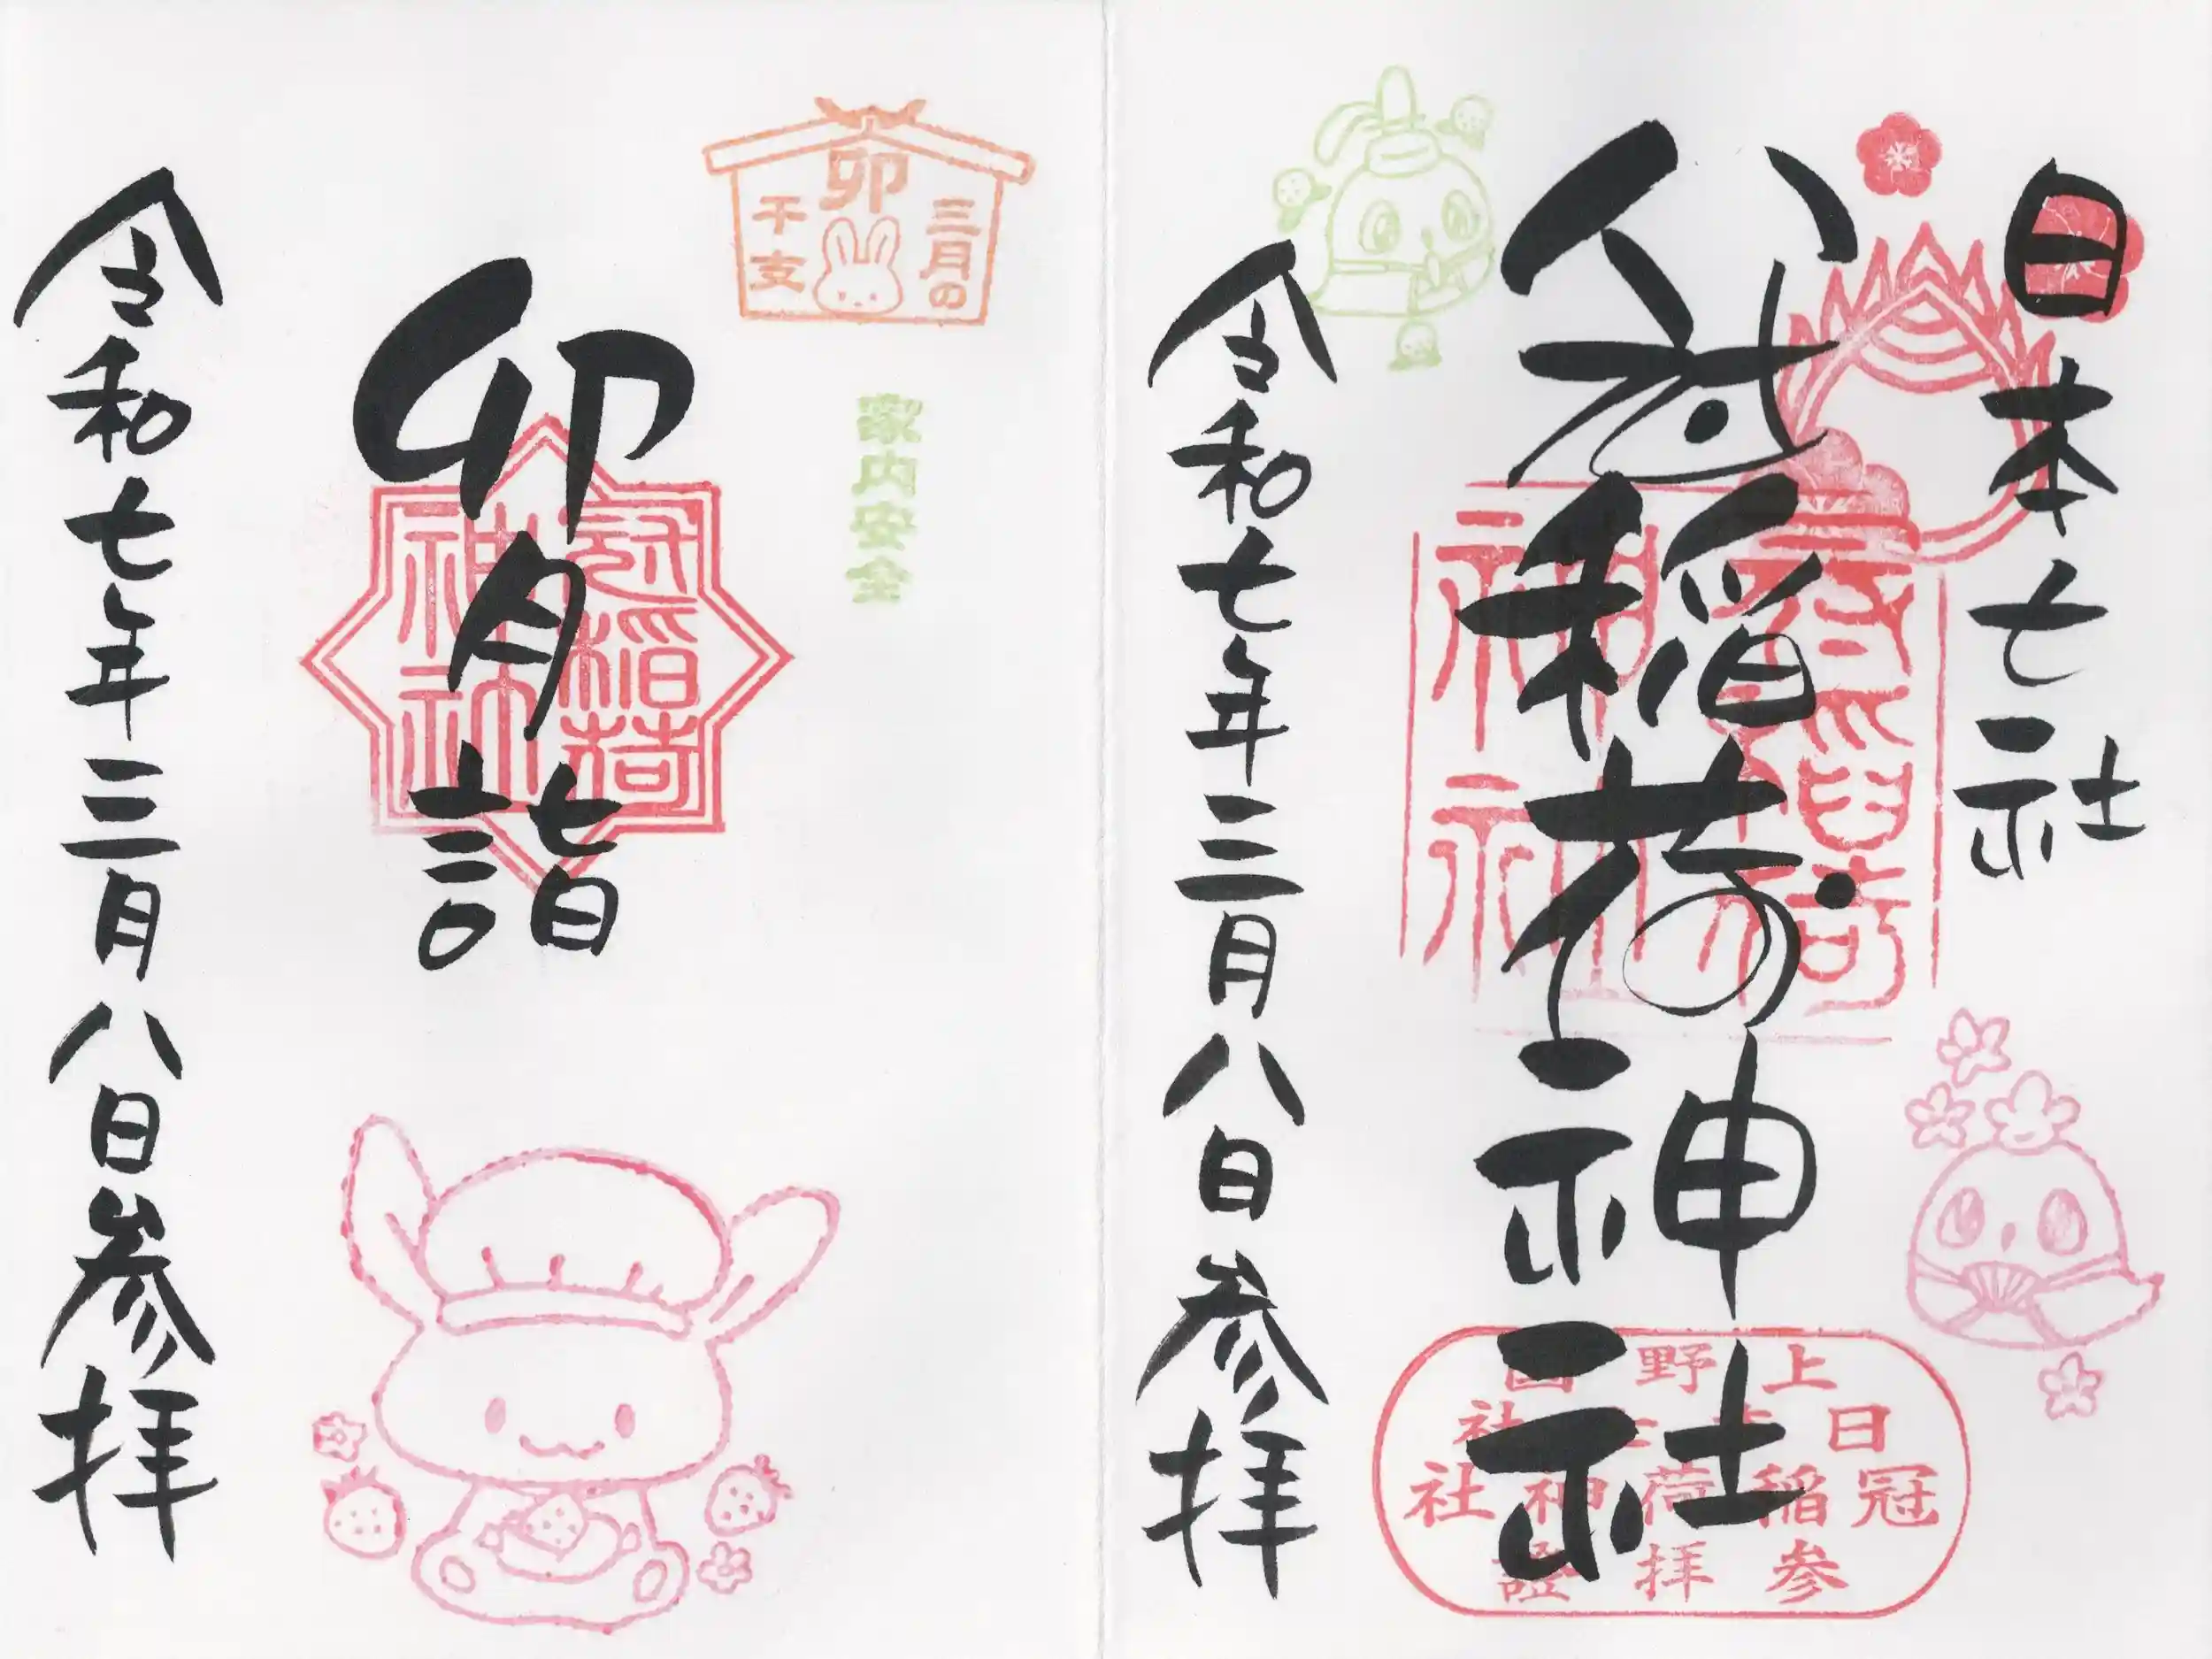 日本七社
冠稲荷神社
冠稲荷
神社
上野国
日本七社
冠稲荷神社
参拝證
令和七年三月八日参拝
三月の
卯
干支
家内安全
卯月詣
冠稲荷
神社
令和七年三月八日参拝